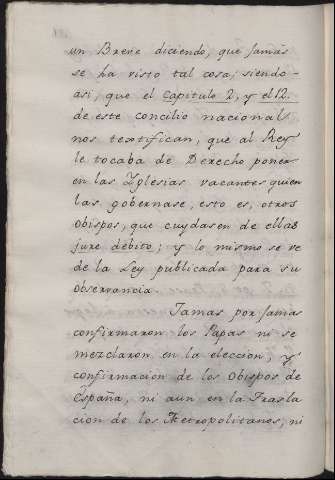 un Breve diciendo, que Jamàs
se ha visto tal cosa; siendo-
asi, que el Capitulo 2, y el 12.
de este concilio nacional
nos textifican, que al Rey
le tocaba de Derecho poner
en las Yglesias vacantes quien
las gobernase, esto es, otros
obispos, que cuydasen de ellas
jure debito; y lo mismo se ve
de la Ley publicada para su
observancia
Jamas por Jamas
confirmaron los Papas ni se
mezclaron en la eleccion, y
confirmacion de los Obispos de
España, ni aun en la Trasla
cion de los Metropolitanos, ni